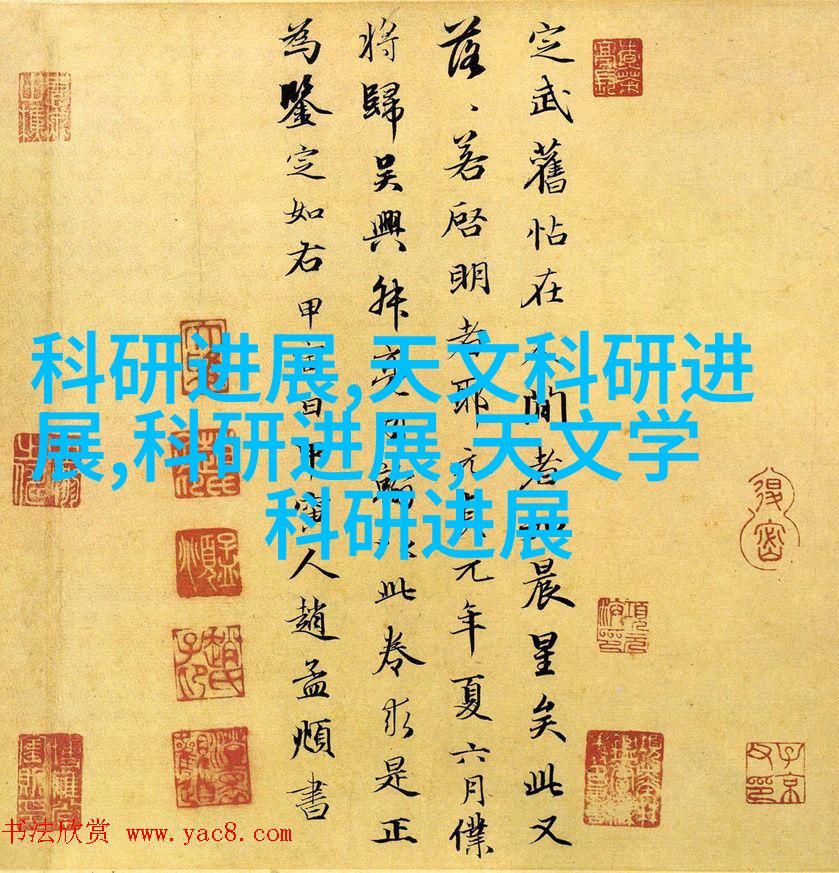 定武舊帖在間者晨星矣此又
落、若啓明者耶元貞元年夏六月僕
將歸吳興此卷求是正
為鑒定如右甲寅日甲寅人趙孟頫書
科研进展,天文科研进
展,科研进展,天文学
科研进展
书法欣赏 www.yac8.com